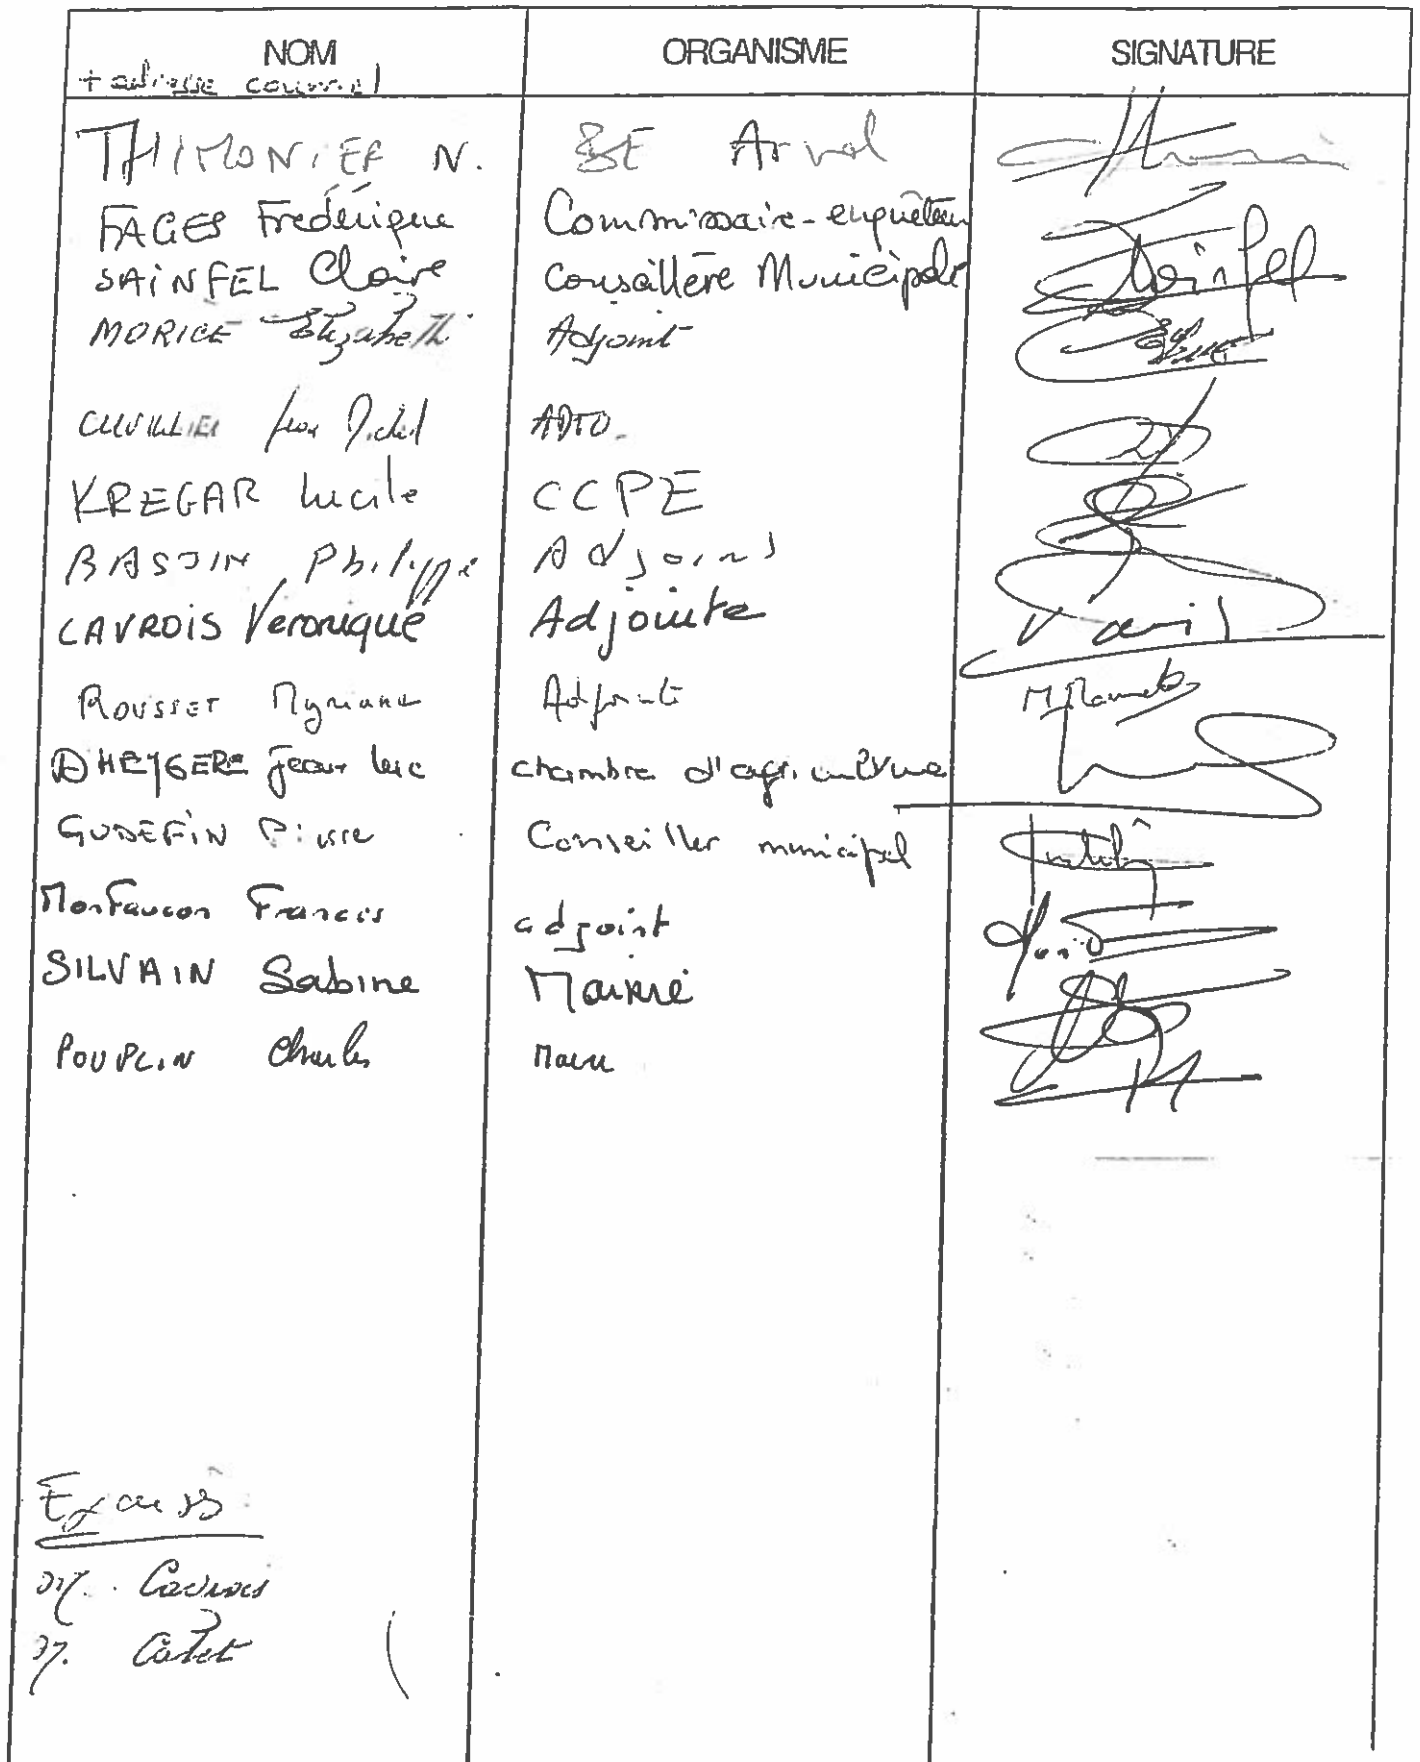 NOM ORGANISME SIGNATURE
+ adresse courriel
THIMONIER N. BE Arval
FAGES Frédérique Commissaire-enquêteur
SAINFEL Claire Conseillère Municipale Sainfel
MORICE Elizabeth Adjoint
CUVILLIER Jean Michel ADTO.
KREGAR Lucile CCPE
Philippe Adjoint
CAVROIS Veronique Adjointe
ROUSSET Myriane Adjointe
DHEYGERE Jean luc chambre d'agriculture
GODEFIN Pierre Conseiller municipal
Monfaucon Francis adjoint
SILVAIN Sabine Mairie
POUPLIN Charles Maire
Excusés
M. Cavrois
M.